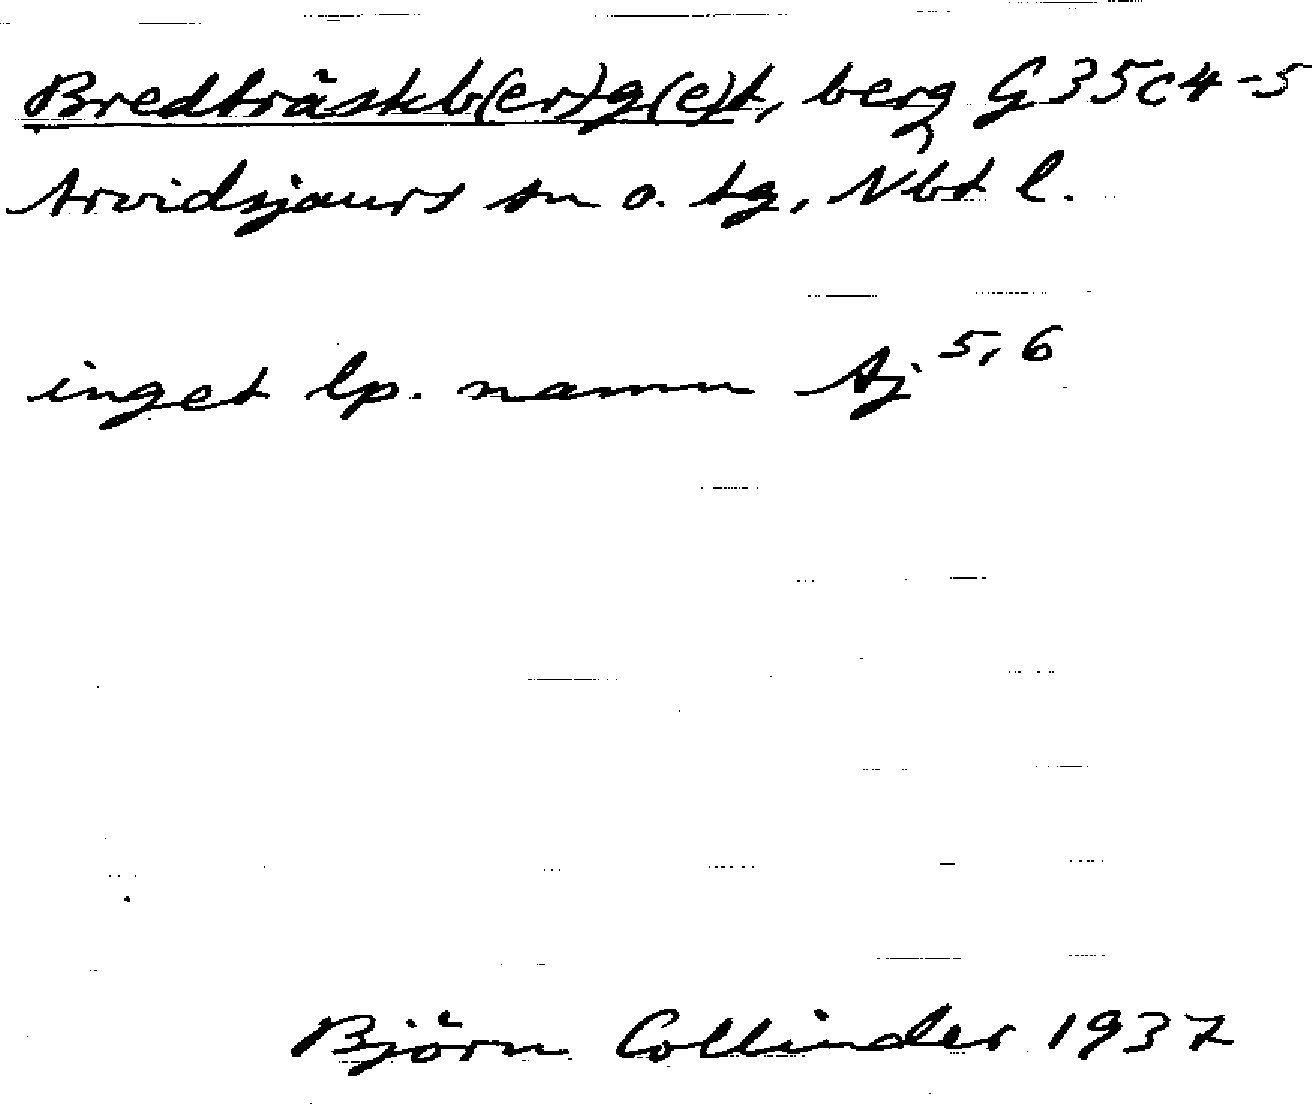 Bredträskb(er)g(e)t, berg G35c4-5
Arvidsjaurs sn o. tg, Nbt l.
inget lp. namn Aj 5,6
Björn Collinder 1937